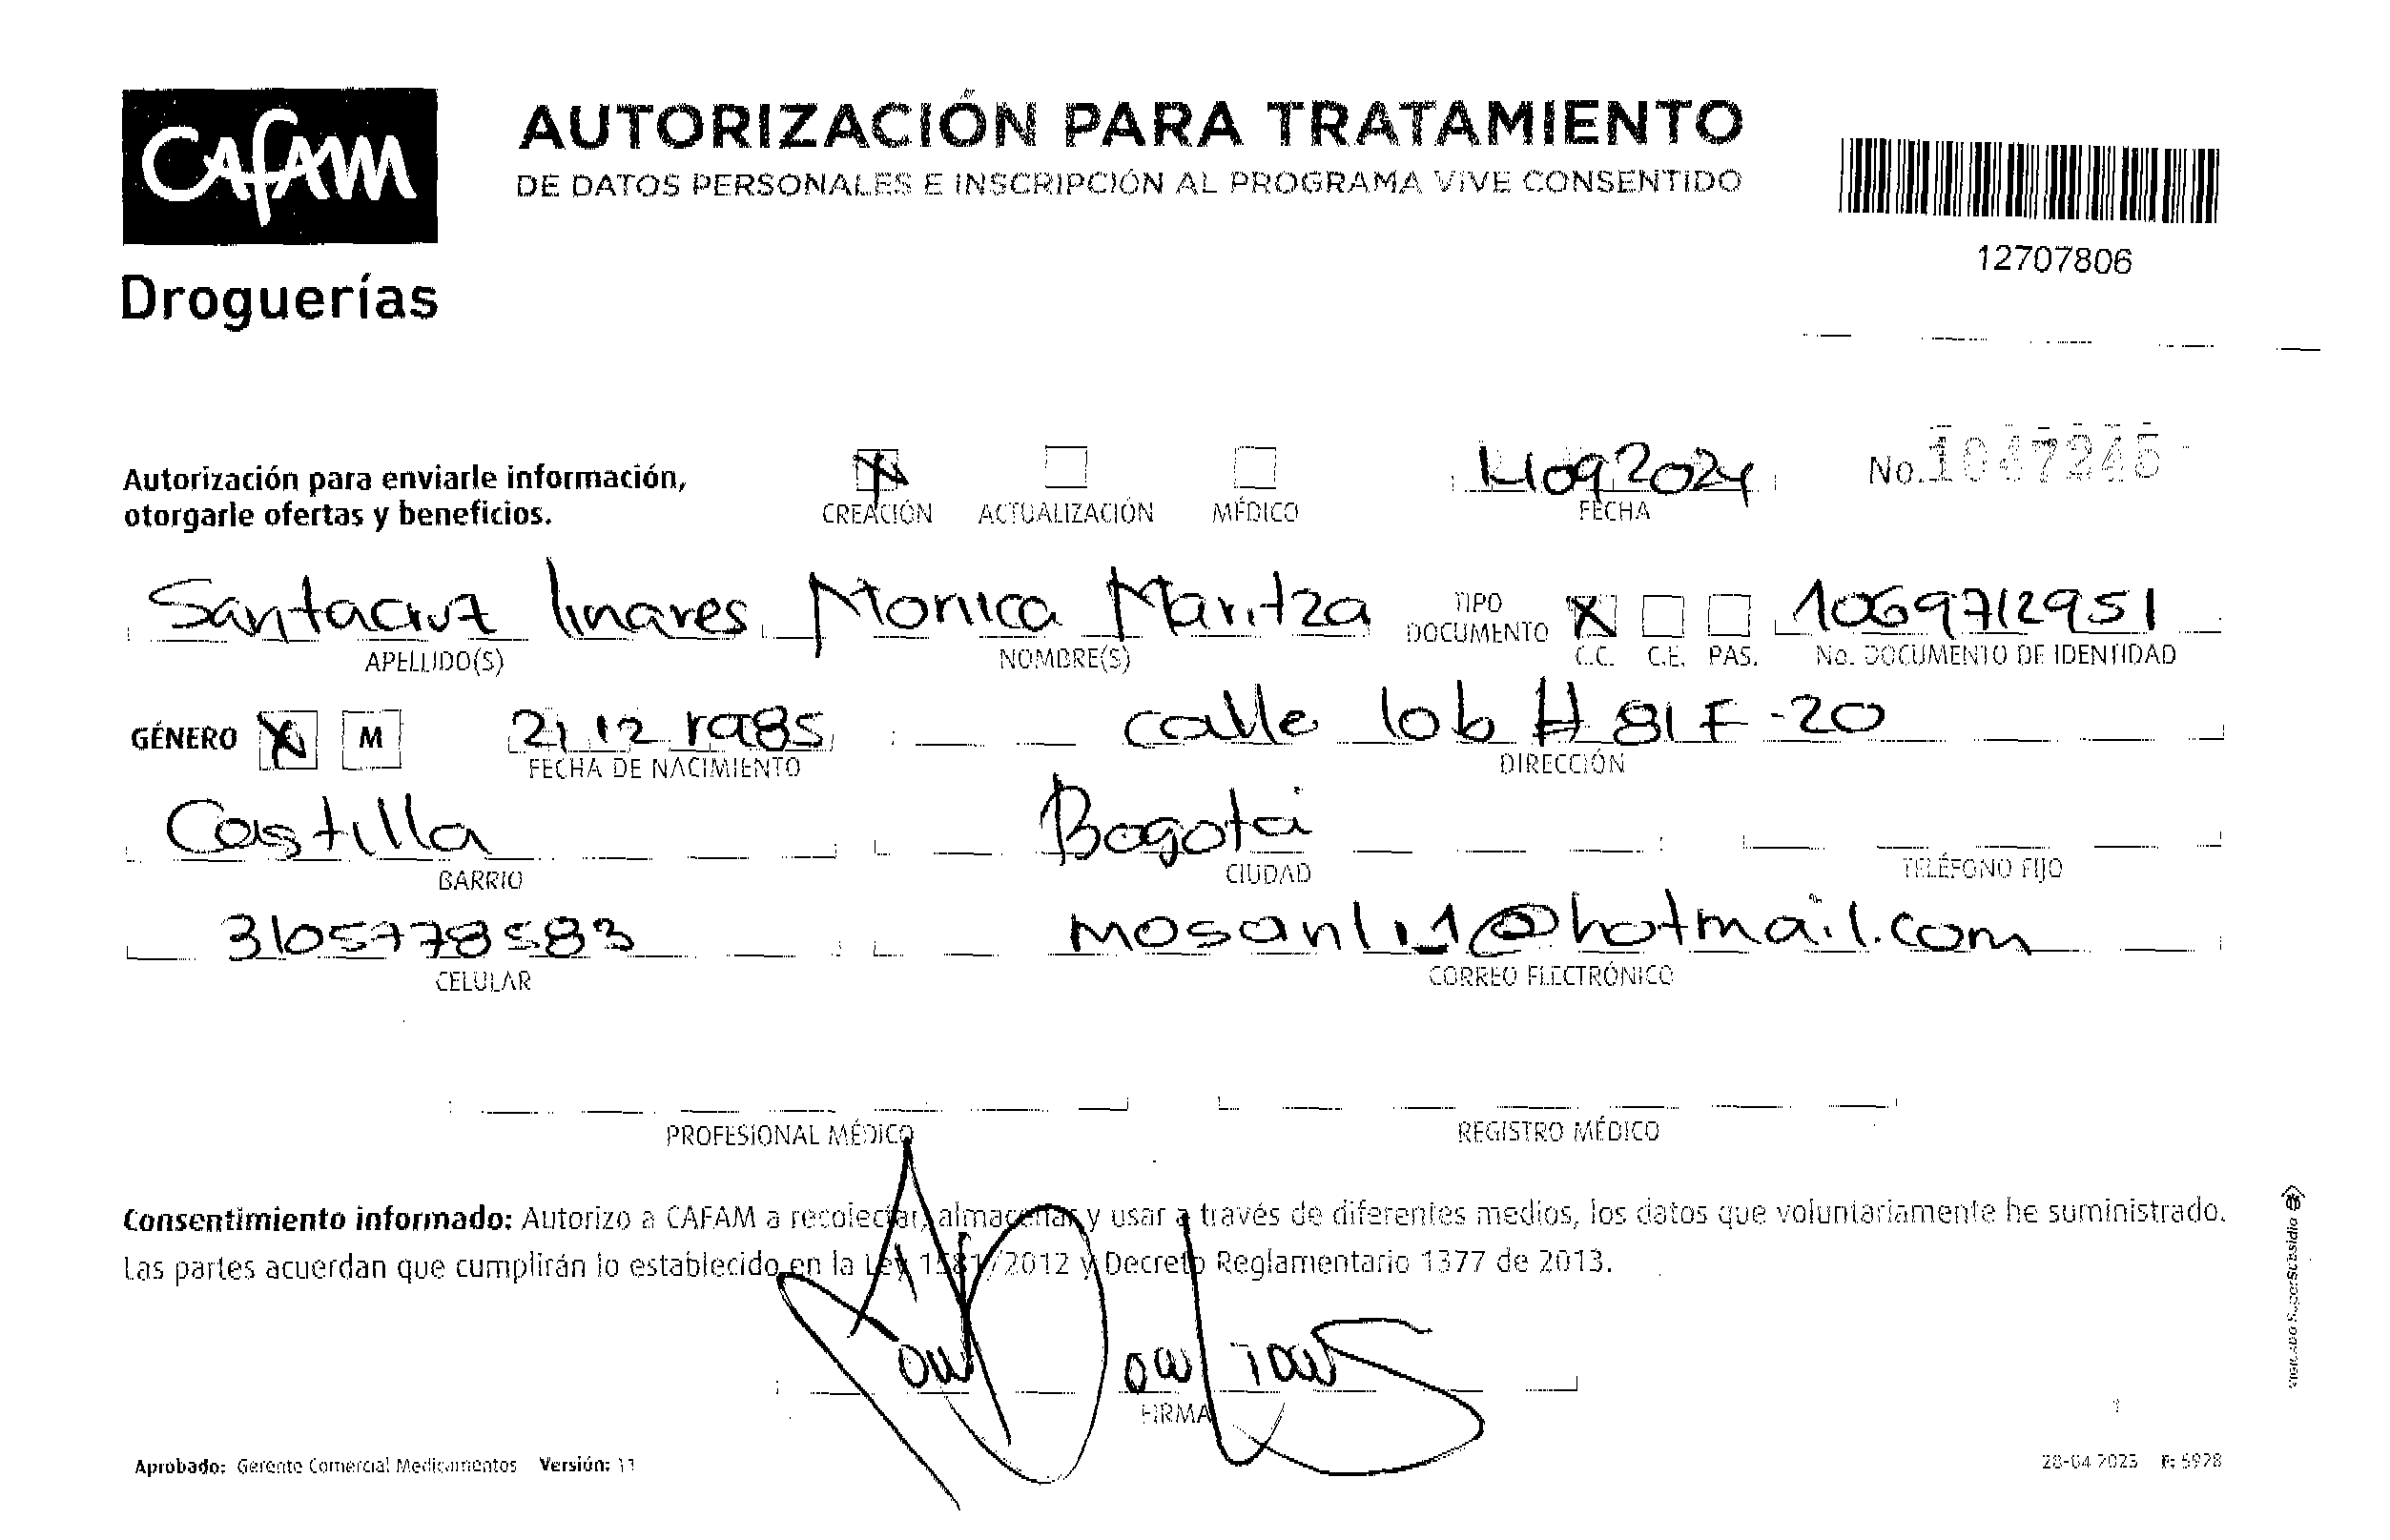 CAFAM
Droguerías
AUTORIZACIÓN PARA TRATAMIENTO
DE DATOS PERSONALES E INSCRIPCIÓN AL PROGRAMA VIVE CONSENTIDO
12707806
Autorización para enviarle información,
otorgarle ofertas y beneficios.
X
CREACIÓN ACTUALIZACIÓN MÉDICO
14092024
FECHA
No. 1047245
Santacruz linares Monica Maritza
APELLIDO(S) NOMBRE(S)
TIPO
DOCUMENTO
X
C.C. C.E. PAS.
1069712951
No. DOCUMENTO DE IDENTIDAD
GÉNERO X M
21 12 1985
FECHA DE NACIMIENTO
calle 10b # 81F-20
DIRECCIÓN
Castilla
BARRIO
Bogotá
CIUDAD
TELÉFONO FIJO
3105778583
CELULAR
mosanli_1@hotmail.com
CORREO ELECTRÓNICO
PROFESIONAL MÉDICO REGISTRO MÉDICO
Consentimiento informado: Autorizo a CAFAM a recolectar, almacenar y usar a través de diferentes medios, los datos que voluntariamente he suministrado.
Las partes acuerdan que cumplirán lo establecido en la Ley 1581/2012 y Decreto Reglamentario 1377 de 2013.
FIRMA
Aprobado: Gerente Comercial Medicamentos Versión: 11
28-04-2023 F: 5928